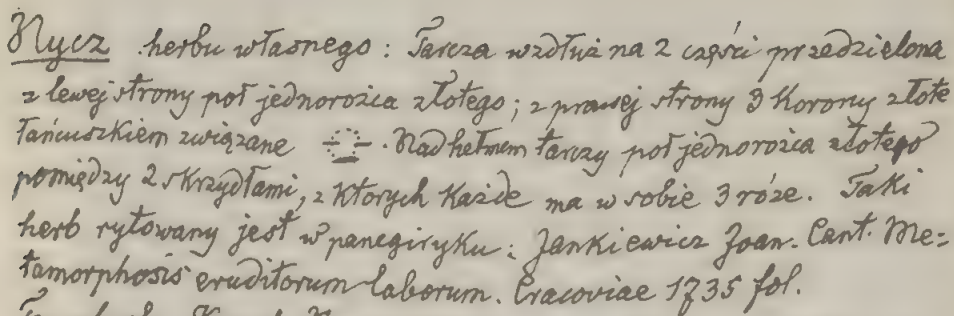 Nycz herbu własnego: Tarcza wzdłuż na 2 części przedzielona
z lewej strony poł jednorożca złotego; z prawej strony 3 Korony złote
łańcuszkiem związane . Nad hełmem tarczy poł jednorożca złotego
pomiędzy 2 skrzydłami, z których Każde ma w sobie 3 róże. Taki
herb rytowany jest w panegiryku: Jankiewicz Joan. Cant. Me-
tamorphosis eruditorum laborum. Cracoviae 1735 fol.